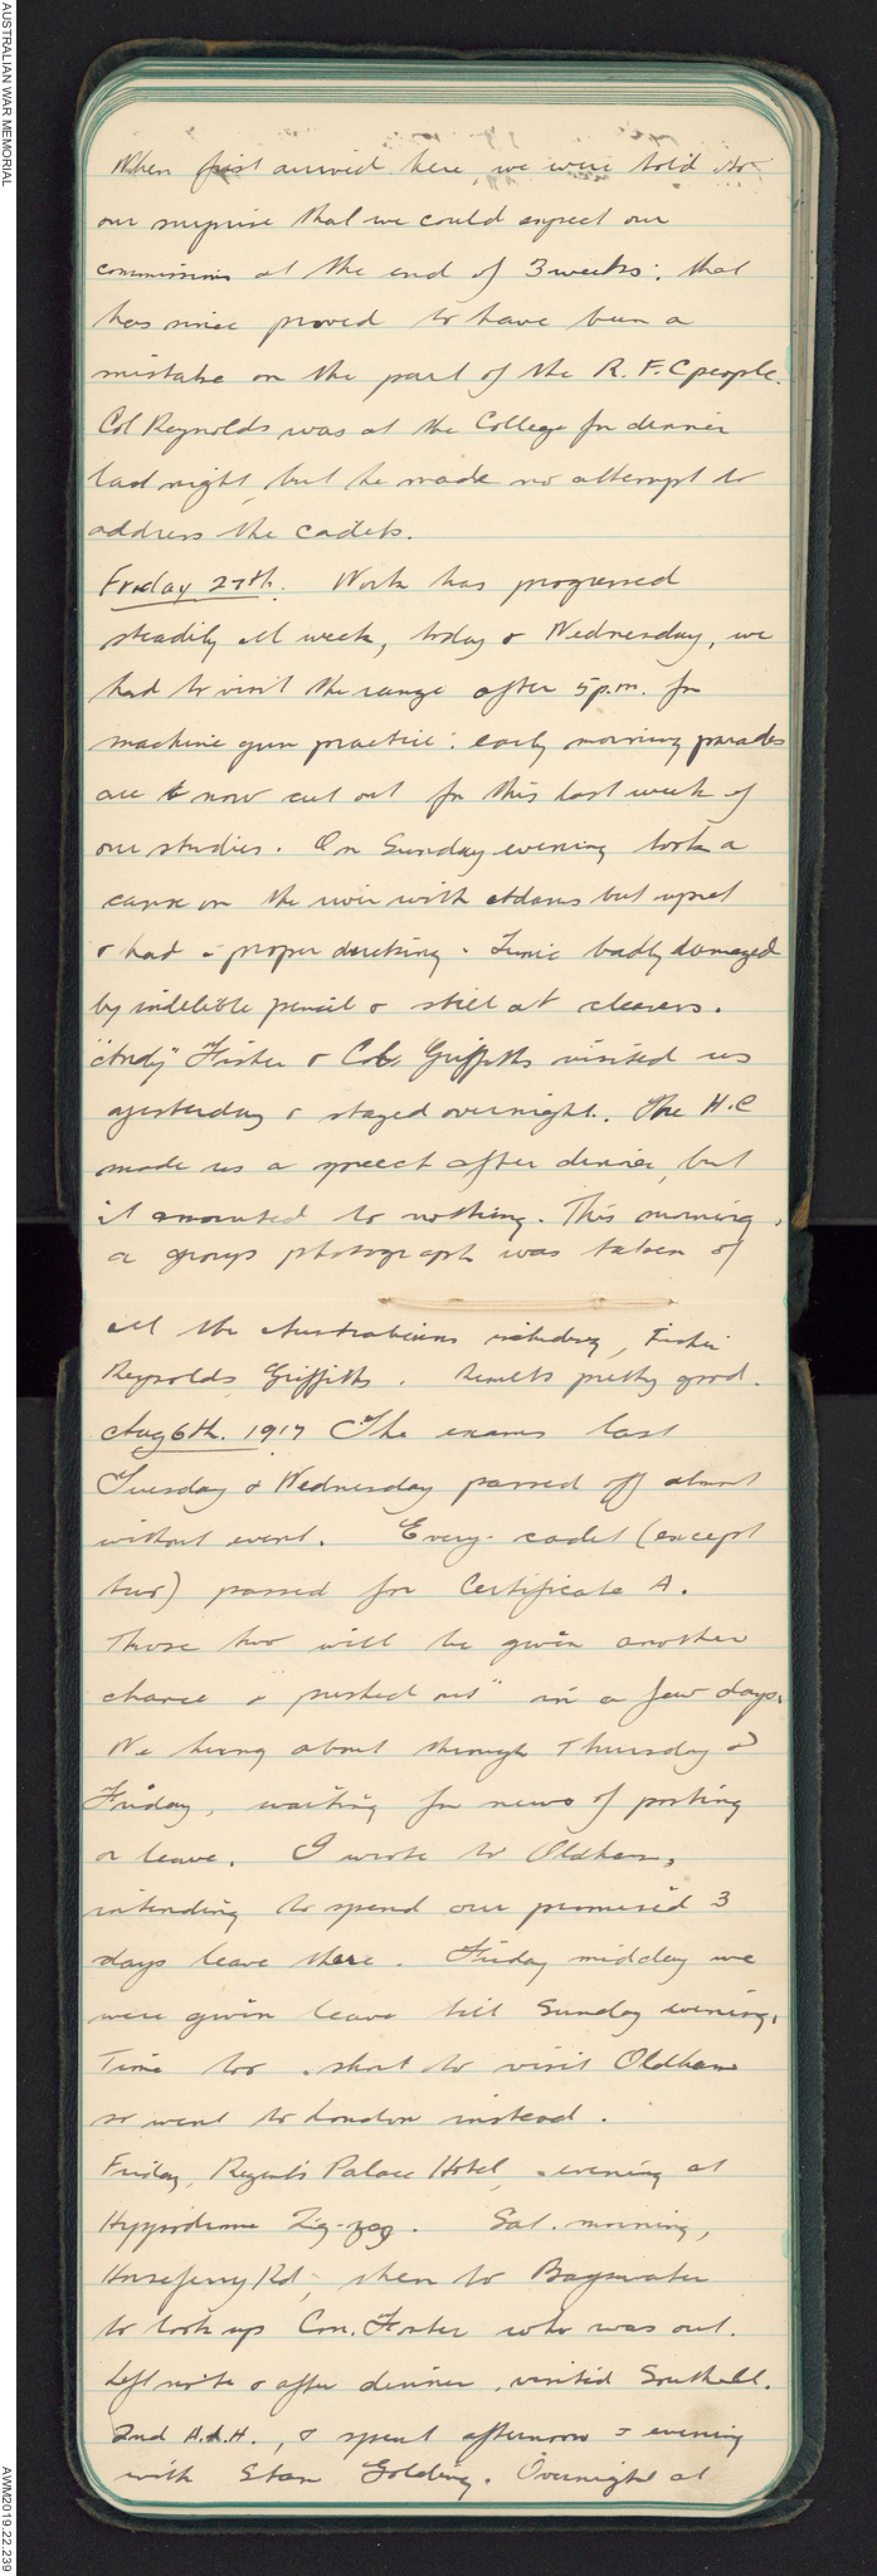 AUSTRALIAN WAR MEMORIAL
When first arrived here, we were told to
our surprise that we could expect our
commissions at the end of 3 weeks; that
has since proved to have been a
mistake on the part of the R.F.C people.
Col Reynolds was at the College for dinner
last night, but he made no attempt to
address the cadets.
Friday 27th. Work has progressed
steadily all week, today & Wednesday, we
had to visit the range after 5 p.m. for
machine gun practice: early morning parades
are now cut out for this last week of
our studies. On Sunday evening took a
canoe on the river with Adams but upset
& had a proper ducking. Tunic badly damaged
by indelible pencil & still at cleaners.
"Andy" Fisher & Col. Griffiths visited us
yesterday & stayed overnight. The H.C
made us a speech after dinner, but
it amounted to nothing. This morning,
a group photograph was taken of
all the Australians including, Fisher
Reynolds Griffiths. Results pretty good.
Aug 6th. 1917 The exams last
Tuesday & Wednesday passed off almost
without event. Every cadet (except
two) passed for Certificate A.
Those two will be given another
chance & "pushed out" in a few days.
We hung about through Thursday &
Friday, waiting for news of posting
or leave. I wrote to Oldham,
intending to spend our promised 3
days leave there. Friday midday we
were given leave till Sunday evening.
Time too short to visit Oldham
so went to London instead.
Friday, Regent's Palace Hotel, evening at
Hyppodrome Zig-zag. Sat. morning,
Horseferry Rd, then to Bayswater
to look up Con. Foster who was out.
Left note & after dinner, visited Southall.
2nd A.A.H., & spent afternoon & evening
with Stan Golding. Overnight at
AWM2019.22.239